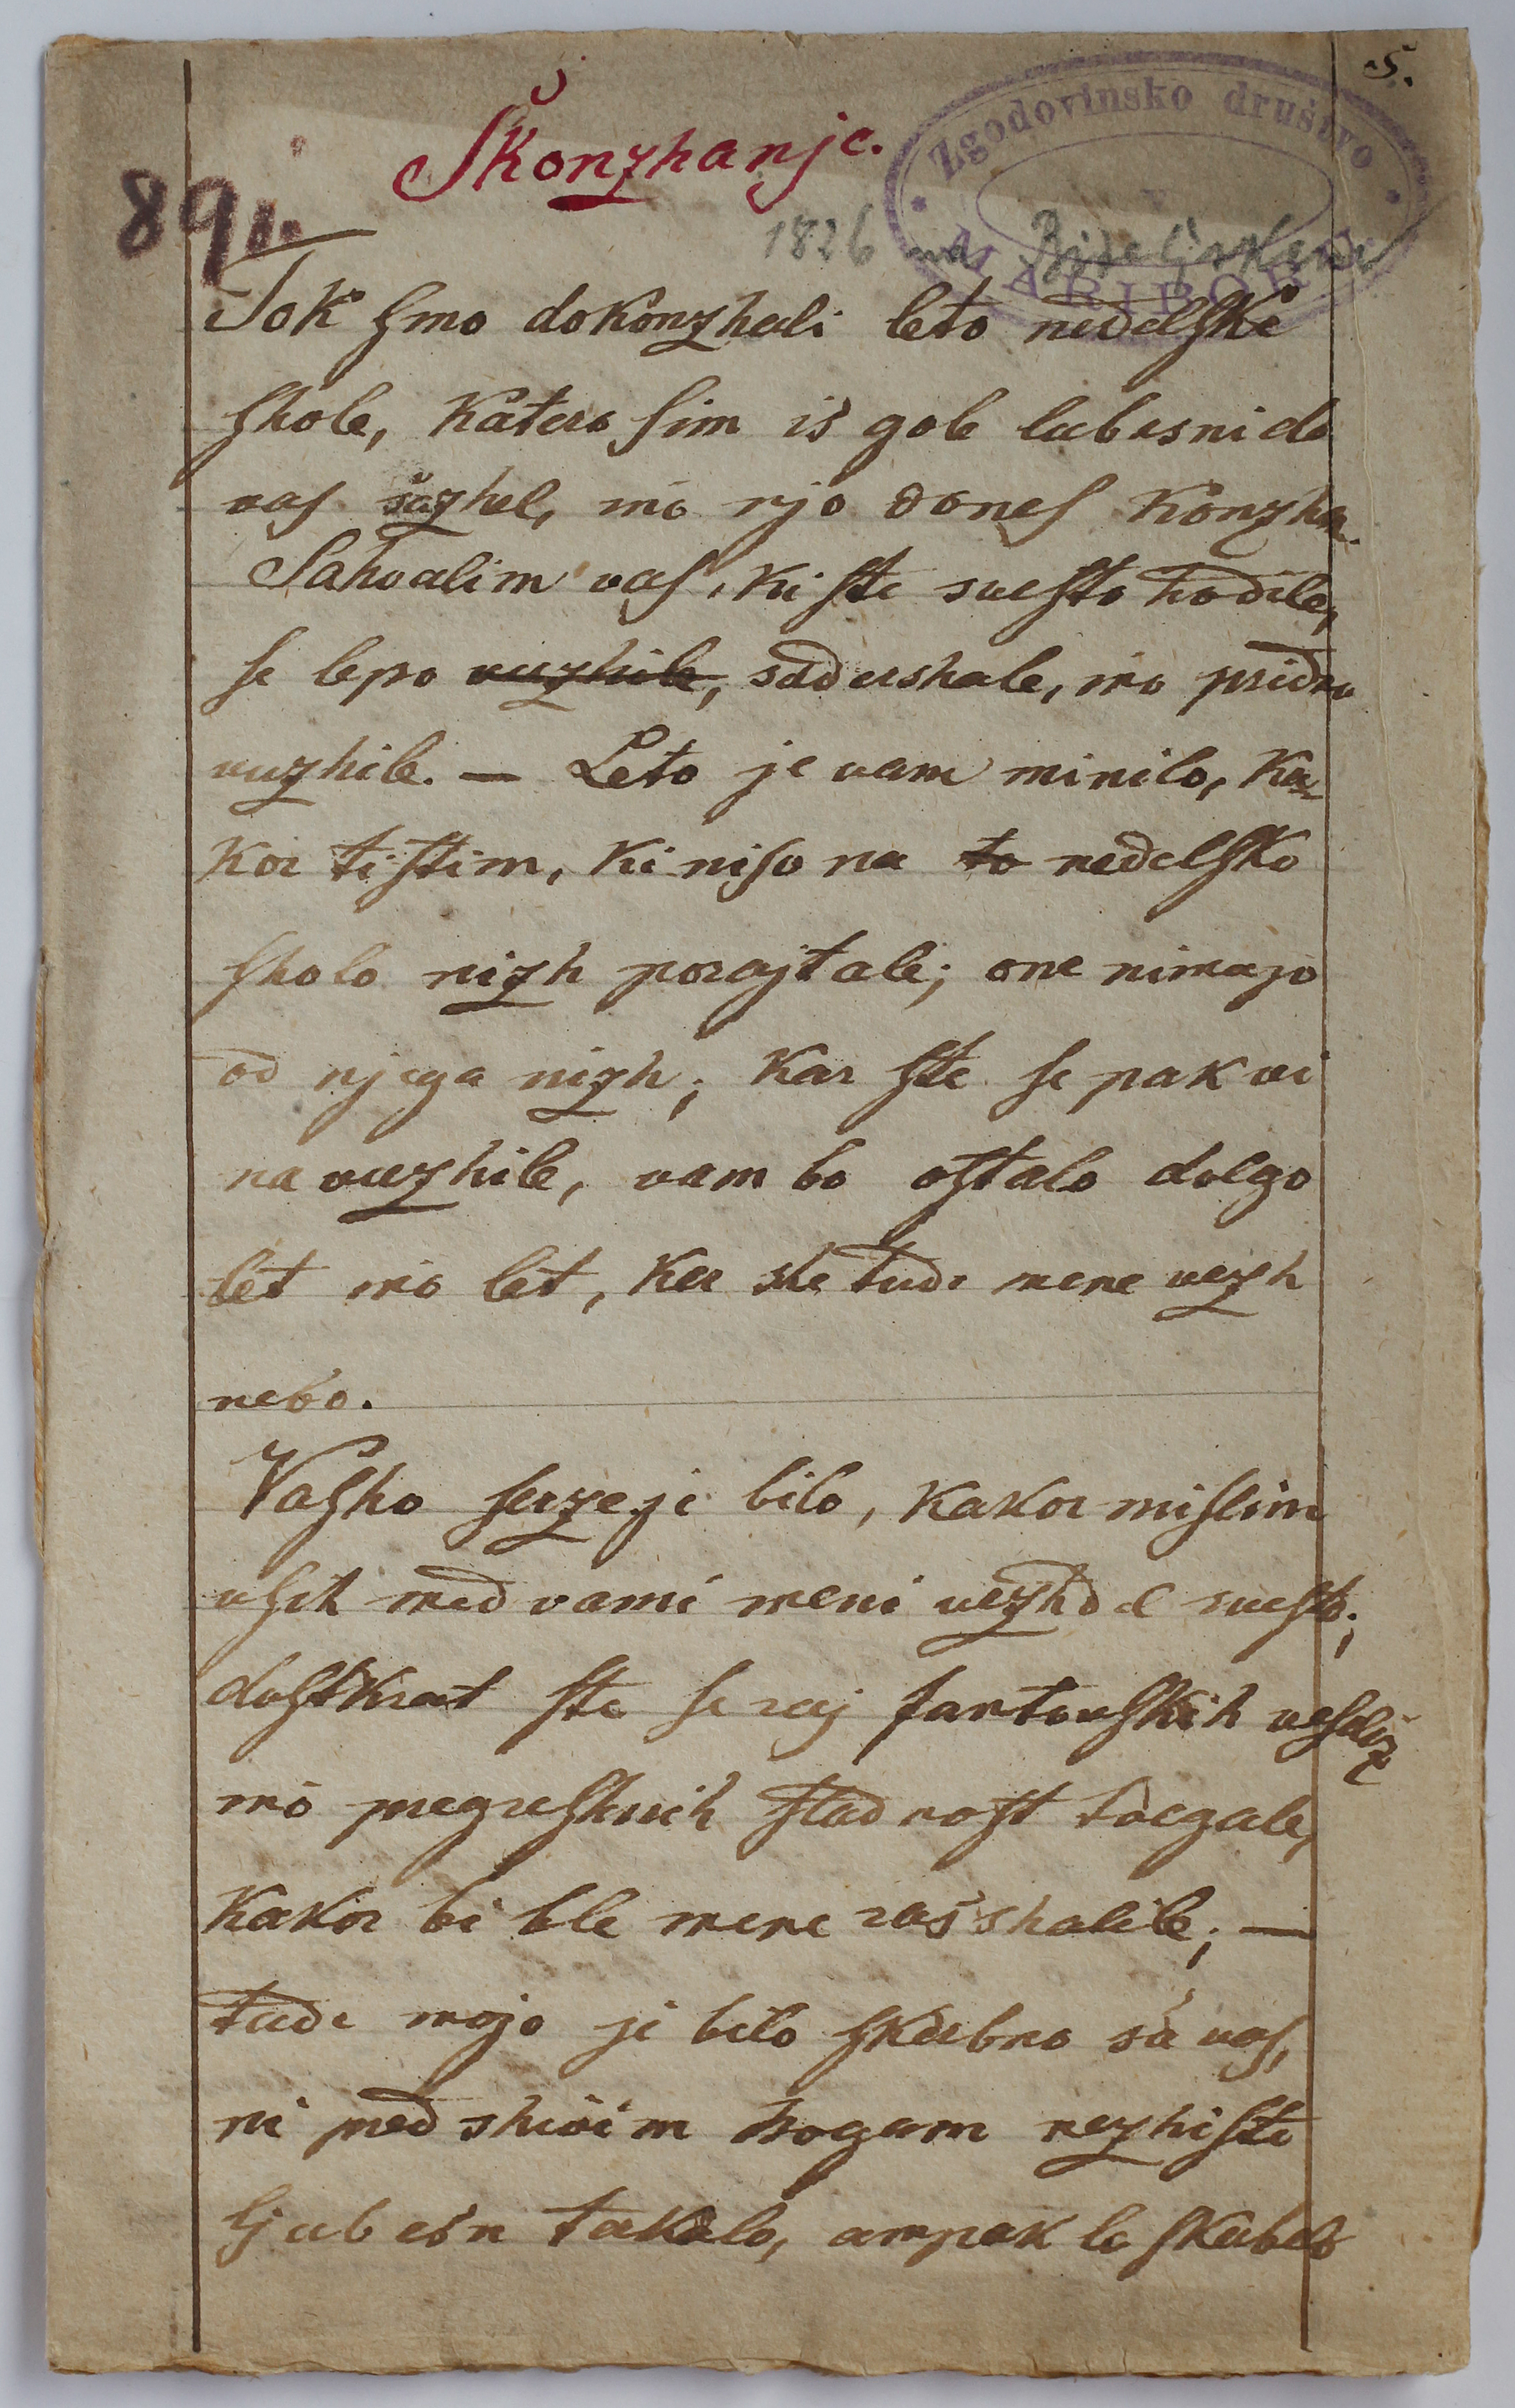 5.
Zgodovinsko društvo
v
MARIBORU
Škonzhanje.
891.
1826 na Biseljskem
Tok ſmo dokonzhali leto nedelſke
ſhole, katero ſim is gole lubesni do
vaſ sazhel, ino njo doneſ konzham.
Sahvalim vaſ, ki ſte sveſto hodile,
ſe lepo vuzhile, sadershale, ino pridno
vuzhile. — Leto je vam minilo, ka-
kor tiſtim, ki niſo na to nedelſko
ſholo nizh porajtale; one nimajo
od njega nizh; kar ſte ſe pak vi
na vuzhile, vam bo oſtalo dolgo
let ino let, ker she tudi mene vezh
nebo.
Vaſho ſerze je bilo, kakor miſlim
vſih med vami meni vezhdel sveſto;
doſtkrat ſte ſe raj fantovſkih veſeliz
ino pregreſhnih ſladnoſt
kakor bi ble mene rasshalile; —
tudi mojo je bilo ſkerbno sa vaſ,
ni pred shivim bogam nezhiſte
ljubesn takalo, ampak le ſkerbelo